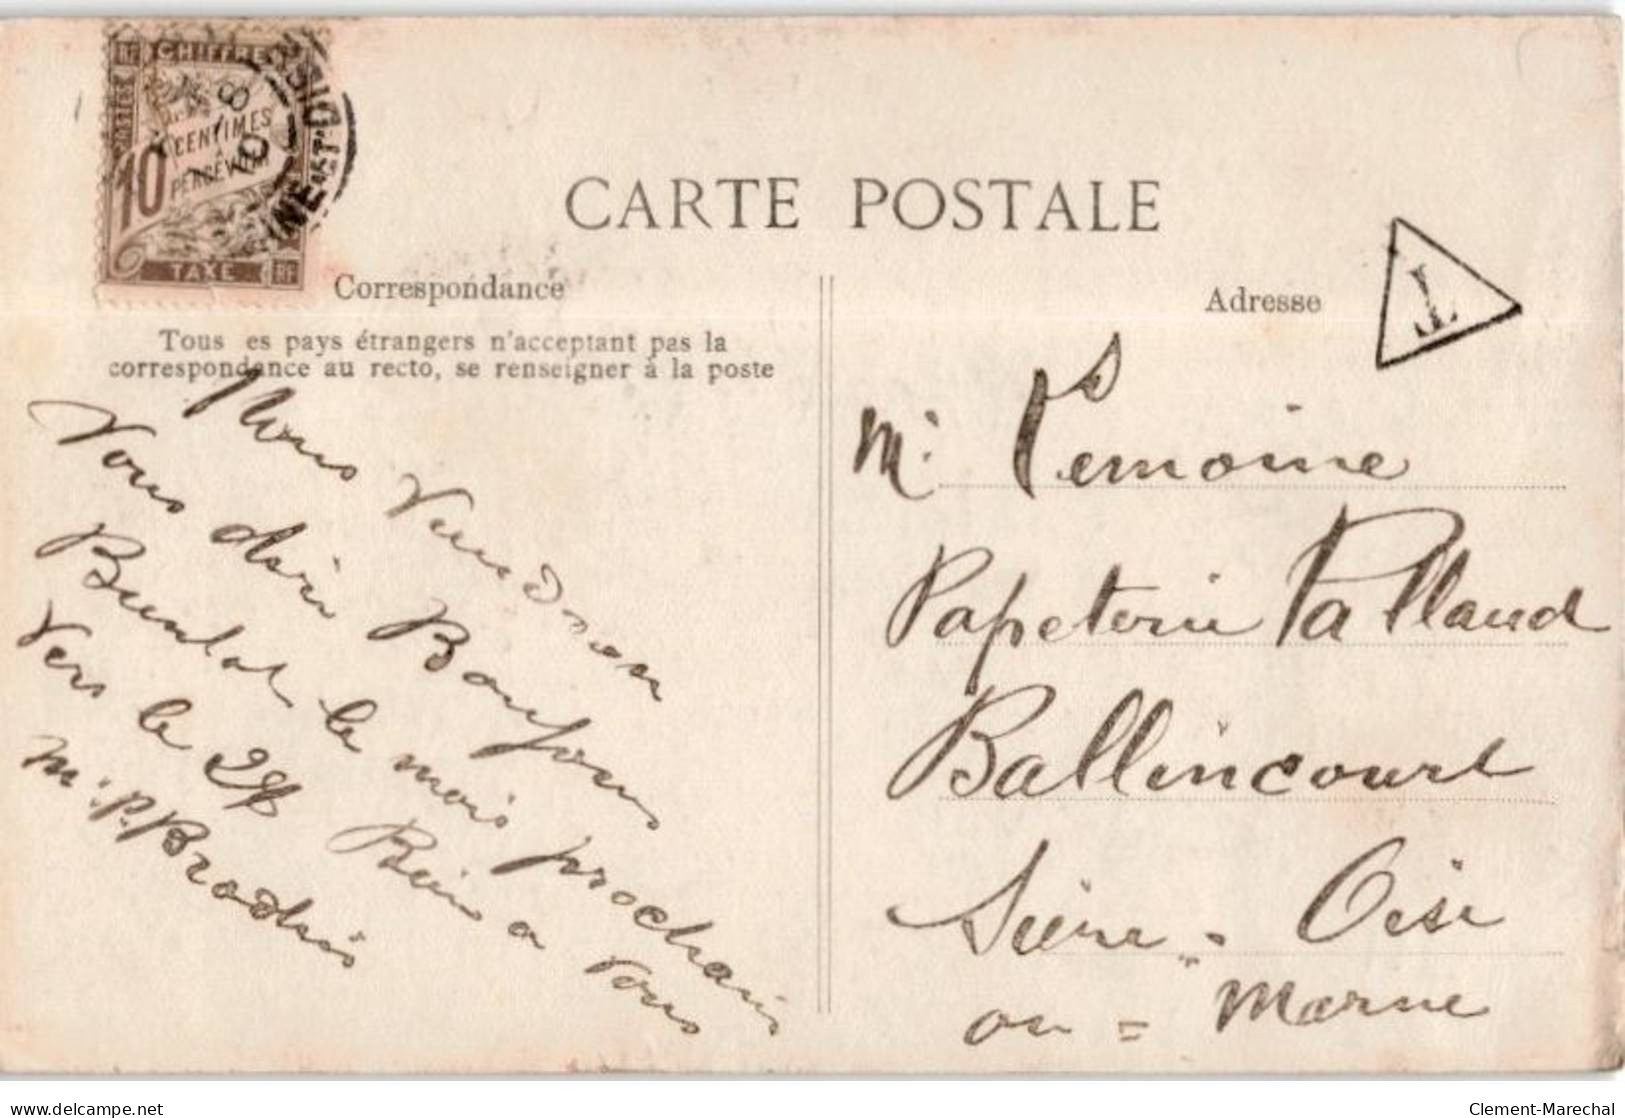 RF CHIFFRE RF
POSTES
10 CENTIMES
À PERCEVOIR
TAXE RF
CARTE POSTALE
Correspondance
Tous es pays étrangers n'acceptant pas la
correspondance au recto, se renseigner à la poste
Nous Viendron
Vous dire Bonjour
Bientot le mois prochain
Vers le 28 Bien a Vous
Mr P.
Adresse
T
Mr Lemoine
Papeterie Palland
Ballincourt
Seine - Oise
ou = Marne
delcampe.net
Clement-Marechal